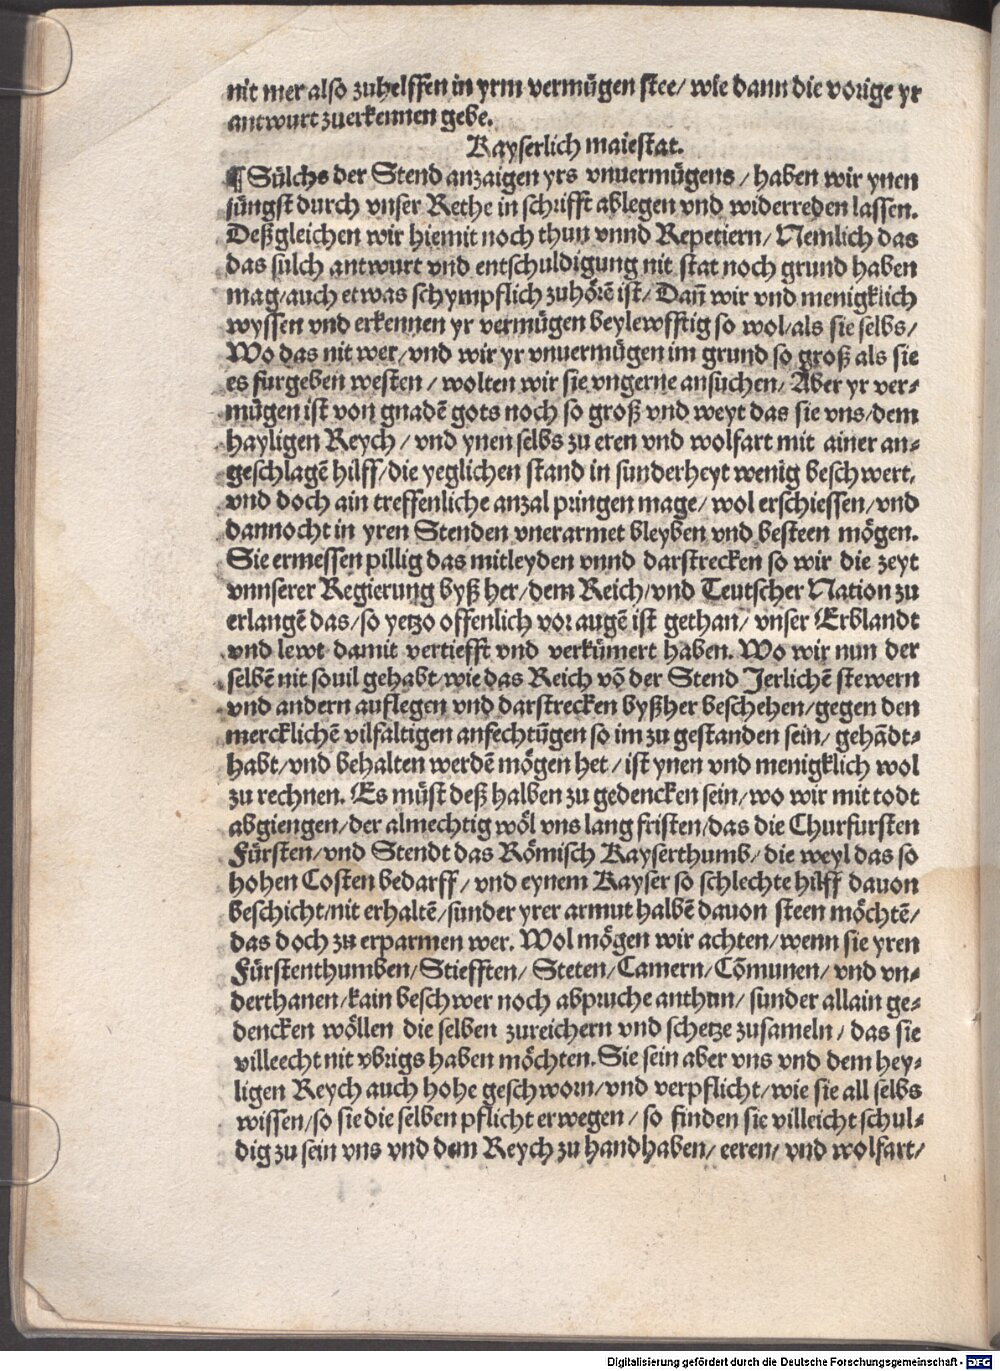 nit mer also zuhelffen in yrm vermügen stee/ wie dann die vorige yr
antwurt zuerkennen gebe.
Kayserlich maiestat.
¶ Sülchs der Stend anzaigen yrs vnuermügens / haben wir ynen
jüngst durch vnser Rethe in schrifft ablegen vnd widerreden lassen.
Deßgleichen wir hiemit noch thun vnnd Repetiern/ Nemlich das
das sülch antwurt vnd entschuldigung nit stat noch grund haben
mag/auch etwas schympflich zuhörē ist/ Dañ wir vnd menigklich
wyssen vnd erkennen yr vermügen beylewfftig so wol/als sie selbs/
Wo das nit wer/vnd wir yr vnuermügen im grund so groß als sie
es furgeben westen / wolten wir sie vngerne ansuchen/ Aber yr ver⸗
mügen ist von gnadē gots noch so groß vnd weyt das sie vns/dem
hayligen Reych / vnd ynen selbs zu eren vnd wolfart mit ainer an⸗
geschlagē hilff/die yeglichen stand in sunderheyt wenig beschwert,
vnd doch ain treffenliche anzal pringen mage/ wol erschiessen/vnd
dannocht in yren Stenden vnerarmet bleyben vnd besteen mögen.
Sie ermessen pillig das mitleyden vnnd darstrecken so wir die zeyt
vnnserer Regierung byß her/dem Reich/vnd Teutscher Nation zu
erlangē das/so yetzo offenlich vor augē ist gethan/ vnser Erblandt
vnd lewt damit vertiefft vnd verkümert haben. Wo wir nun der
selbē nit souil gehabt/wie das Reich vō der Stend Jerlichē stewern
vnd andern auflegen vnd darstrecken byßher beschehen/gegen den
mercklichē vilfaltigen anfechtūgen so im zu gestanden sein/ gehādt⸗
habt/vnd behalten werdē mögen het/ ist ynen vnd menigklich wol
zu rechnen. Es müst deß halben zu gedencken sein/wo wir mit todt
abgiengen/der almechtig wöl vns lang fristen/das die Churfursten
Fürsten/vnd Stendt das Römisch Kayserthumb/ die weyl das so
hohen Costen bedarff / vnd eynem Kayser so schlechte hilff dauon
beschicht/nit erhaltē/sunder yrer armut halbē dauon steen möchtē/
das doch zu erparmen wer. Wol mögen wir achten/wenn sie yren
Fürstenthumben/Stiefften/ Steten/Camern/Cōmunen/ vnd vn⸗
derthanen/kain beschwer noch abpruche anthun/ sunder allain ge⸗
dencken wöllen die selben zureichern vnd schetze zusameln / das sie
villeecht nit vbrigs haben möchten. Sie sein aber vns vnd dem hey⸗
ligen Reych auch hohe geschworn/vnd verpflicht/wie sie all selbs
wissen/so sie die selben pflicht erwegen / so finden sie villeicht schul⸗
dig zu sein vns vnd dem Reych zu handhaben/ eeren/ vnd wolfart/
Digitalisierung gefördert durch die Deutsche Forschungsgemeinschaft - DFG